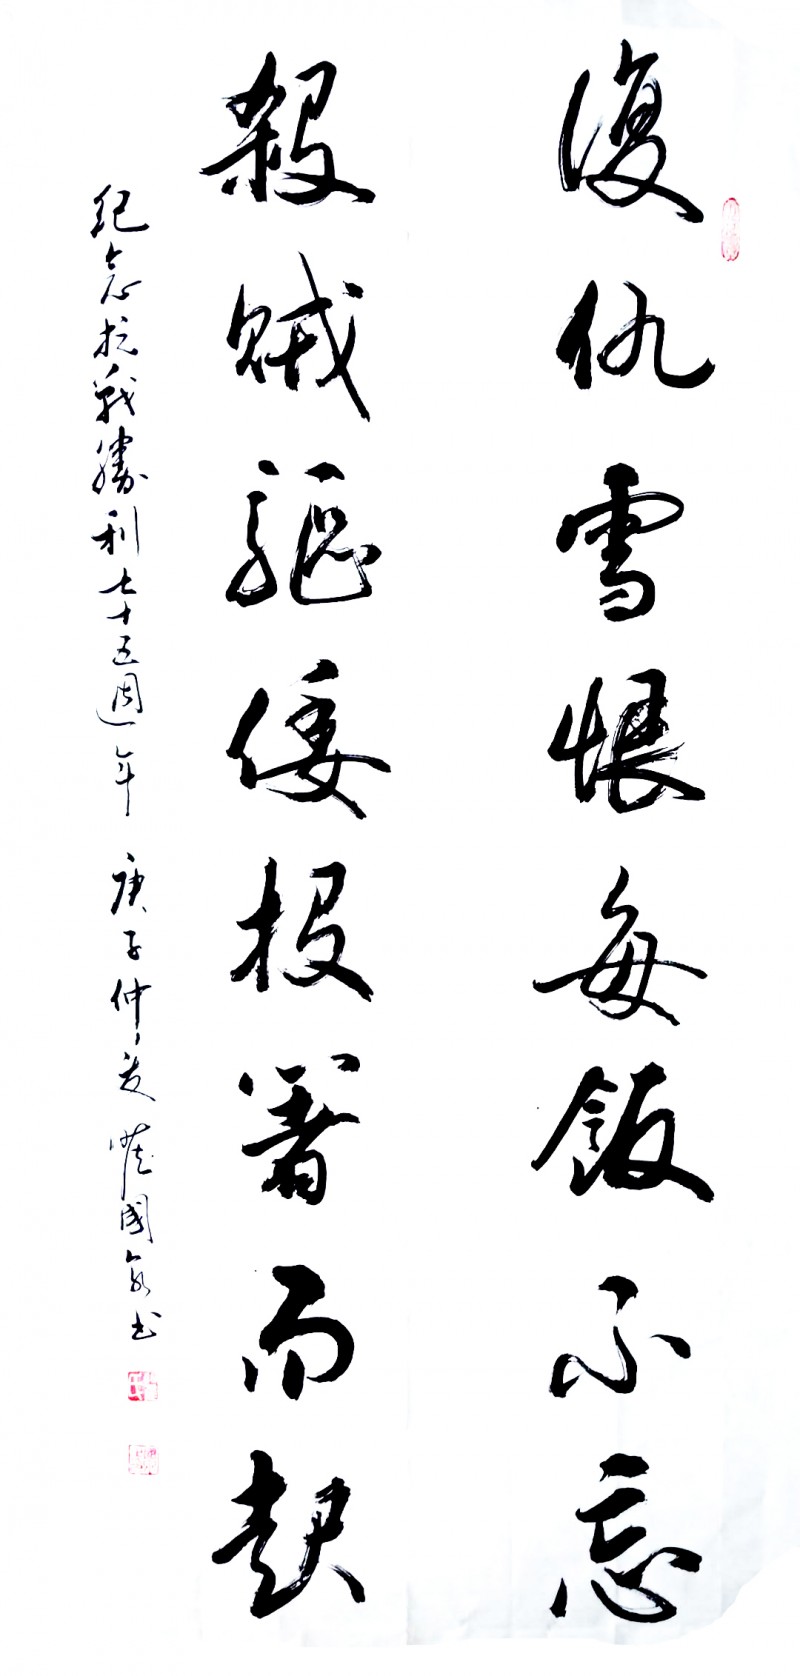 復仇雪恨每飯不忘
殺賊驅倭投箸而起
紀念抗戰勝利七十五週年 庚子仲夏 國書